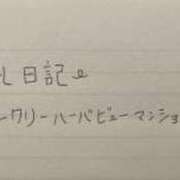 し日記
ークリーハーバービューマンショ